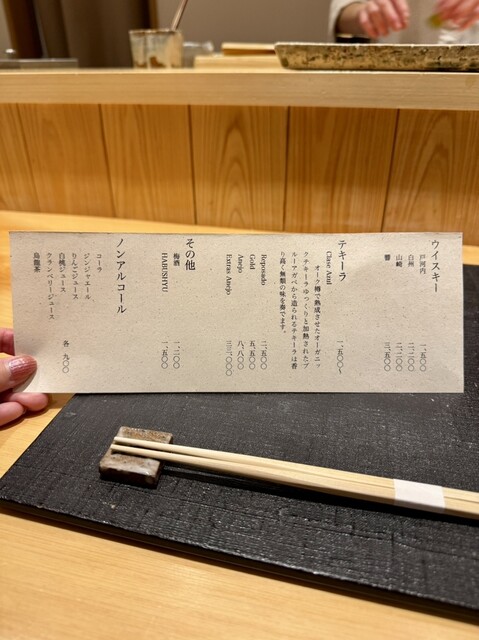 ウイスキー
戸河内 一、五〇〇
白州 二、二〇〇
山崎 二、二〇〇
響 三、五〇〇
テキーラ
Clase Azul 一、五〇〇〜
オーク樽で熟成させたオーガニッ
クテキーラゆっくりと加熱されたブ
ルーアガベから造られるテキーラは香
り高く無類の味を奏でます。
Reposado 二、五〇〇
Gold 五、五〇〇
Anejo 八、八〇〇
Extras Anejo 三三、〇〇〇
その他
梅酒 一、二〇〇
HABUSHYU 一、五〇〇
ノンアルコール
コーラ
ジンジャエール
りんごジュース
白桃ジュース
クランベリージュース
烏龍茶 各 九〇〇